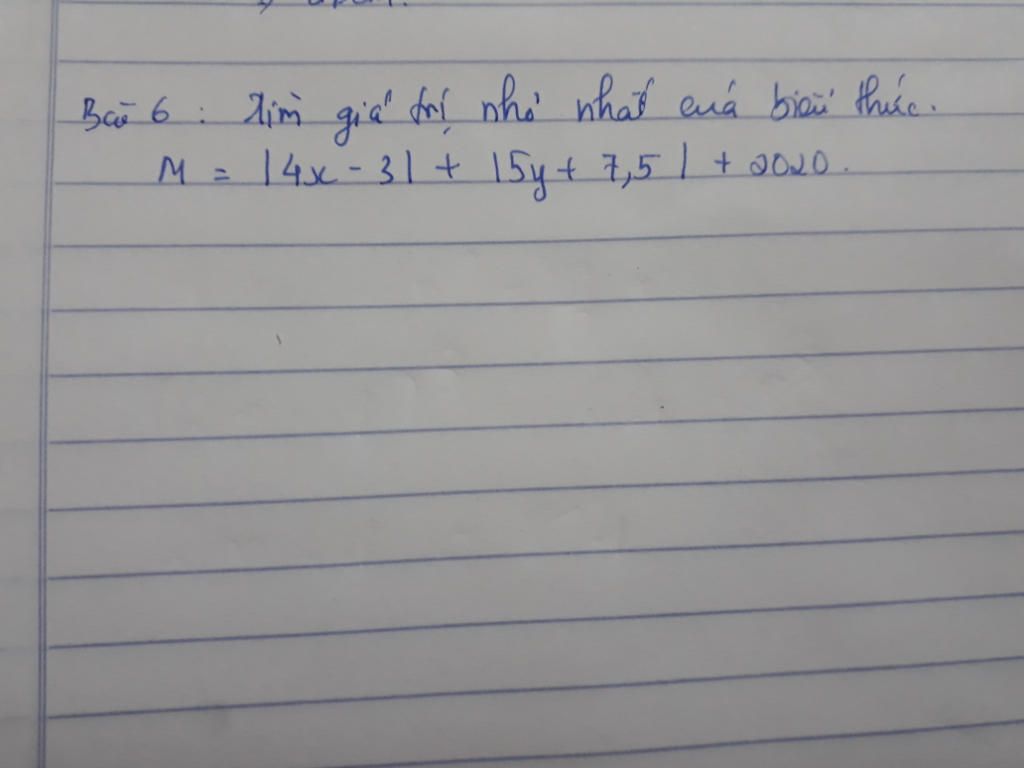 Bài 6 : Tìm giá trị nhỏ nhất cuả biểu thức.
M = |4x - 3| + |5y + 7,5| + 2020.